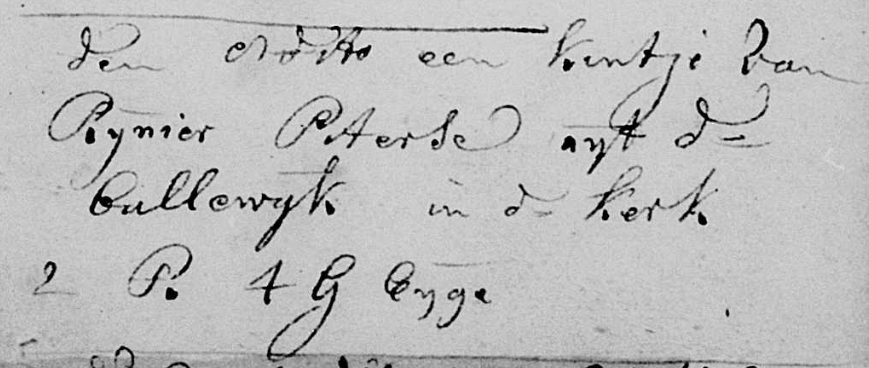 den ditto een kintje van
Rynier Pıterse uyt d
bullewyk in d kerk
2 P. 4 G Eyge